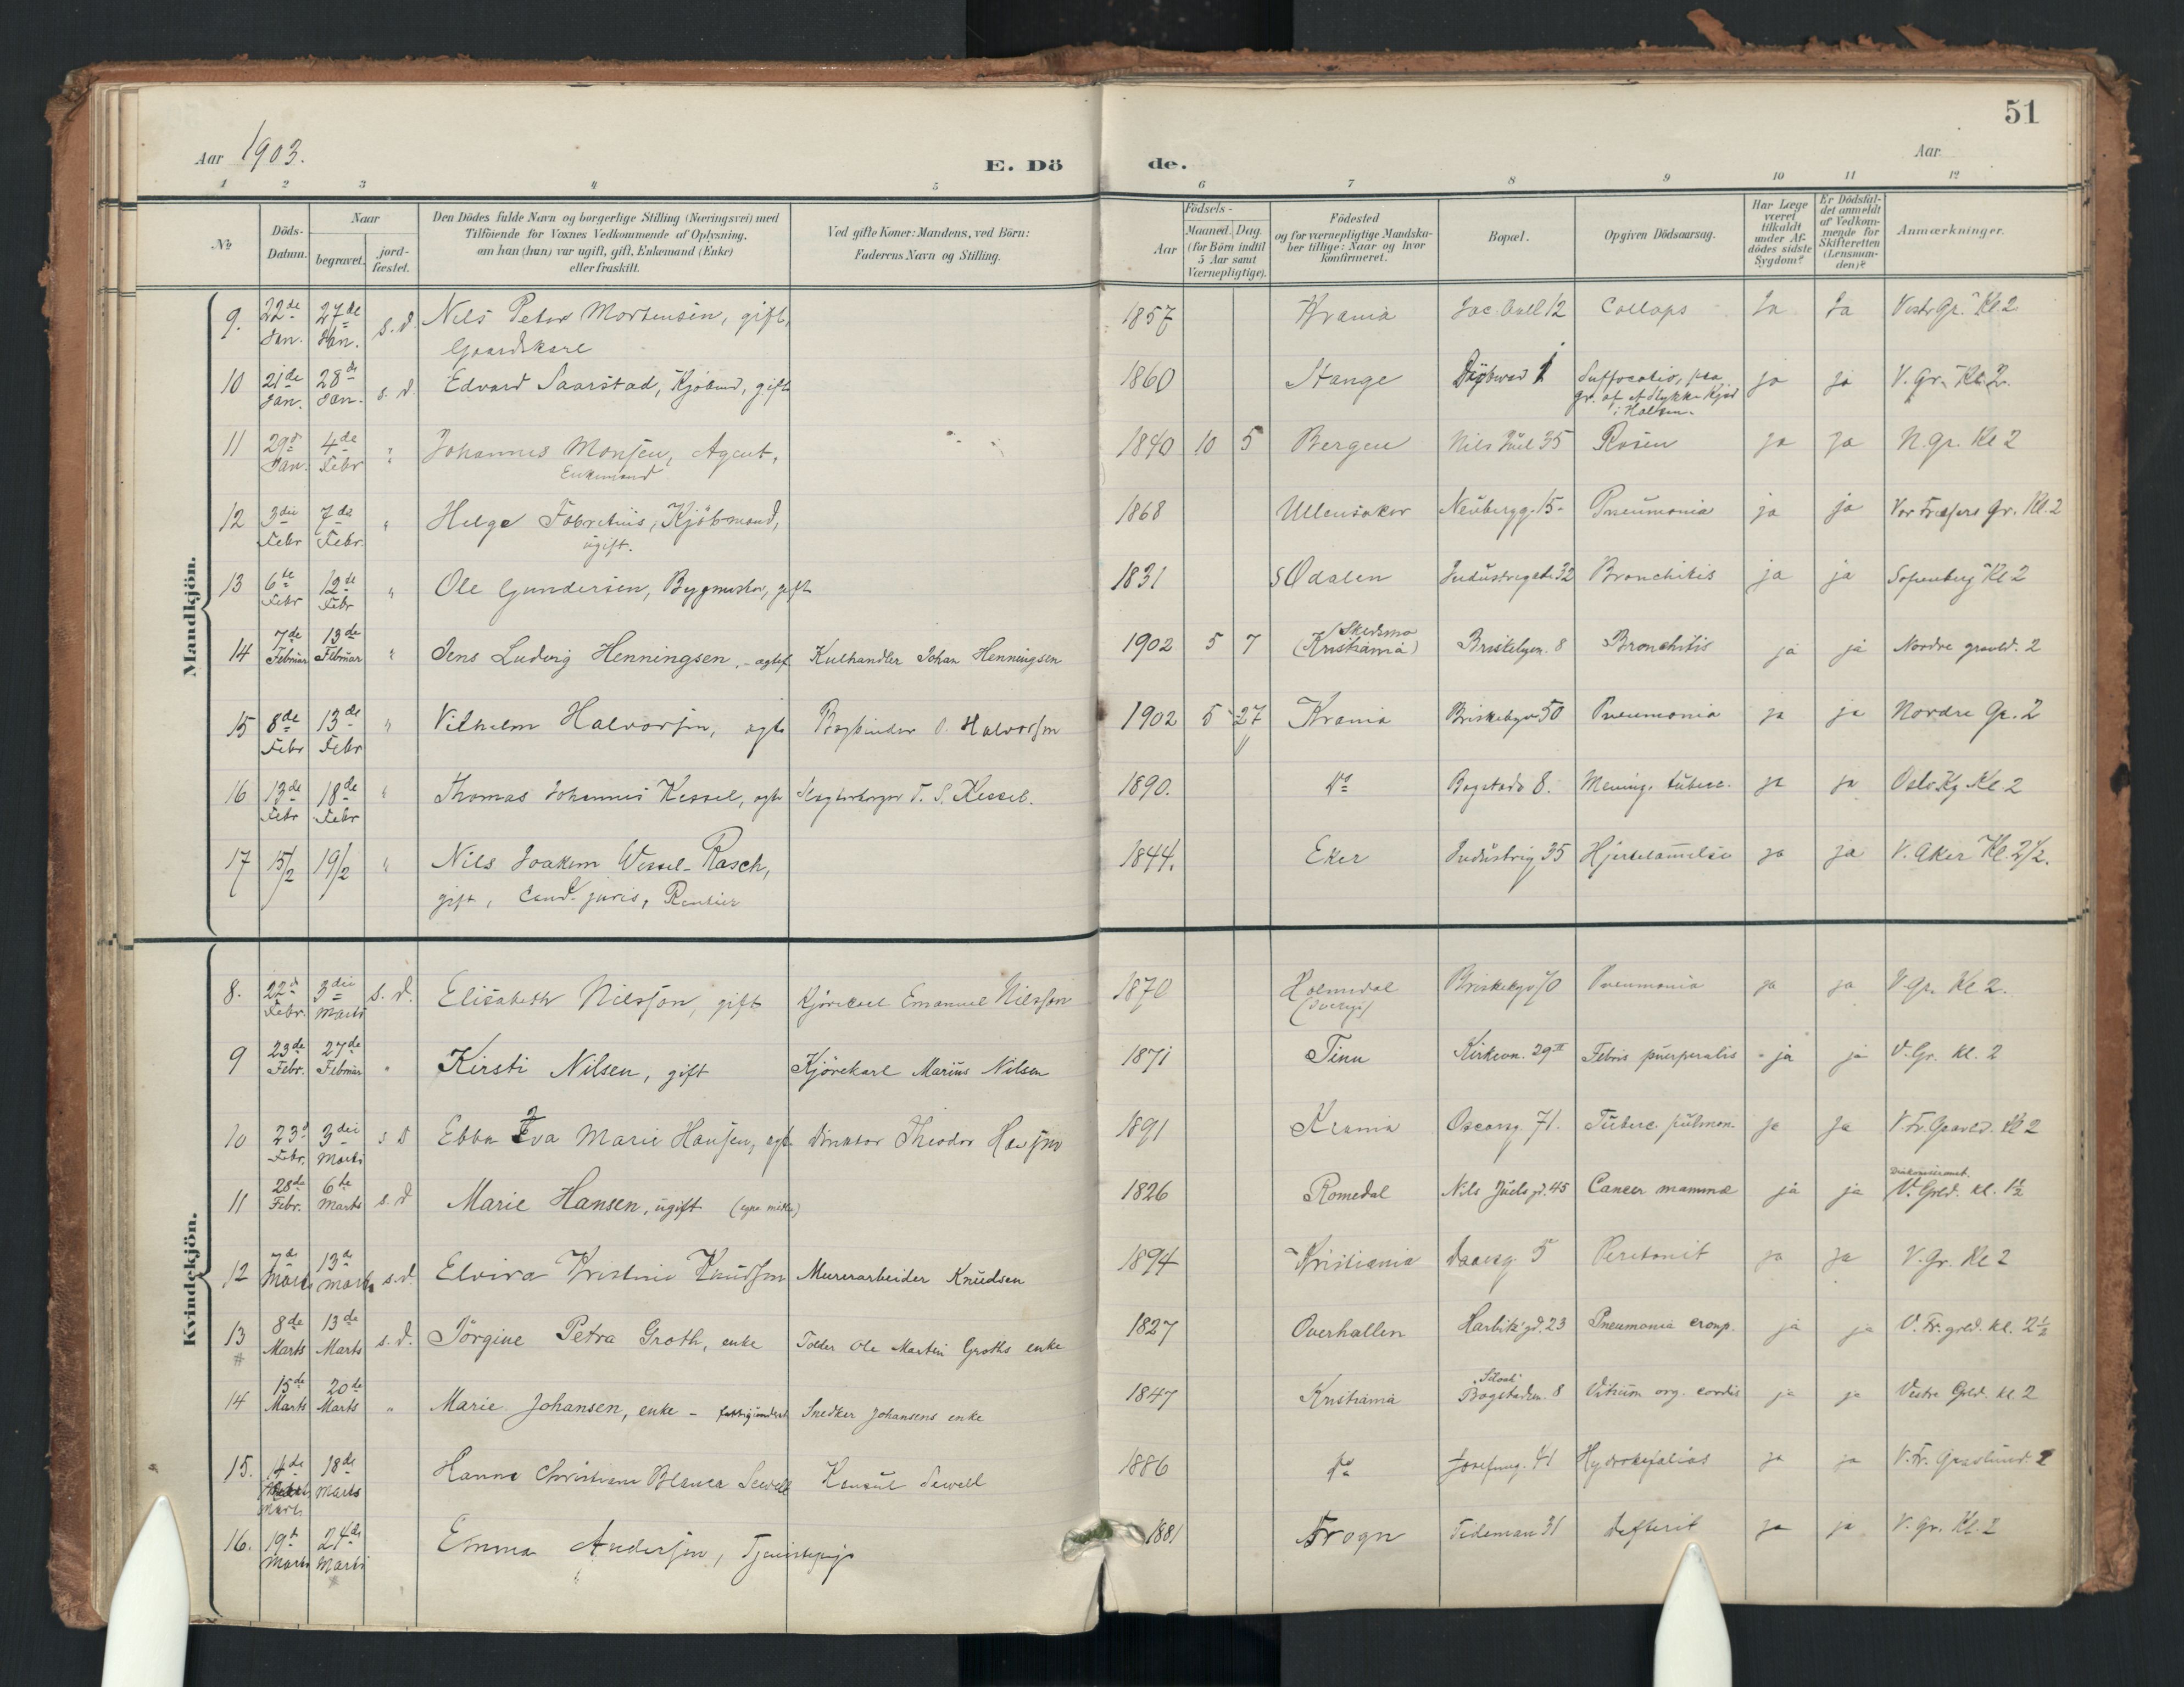 51
Aar 1903.
E. Dö de.
Aar
1 2 3 4 5 6 7 8 9 10 11 12
№
Döds-Datum.
Naar
begravet.
jord-fæstet.
Den Dödes fulde Navn og borgerlige Stilling (Næringsvei) med
Tilföiende for Voxnes Vedkommende af Oplysning,
om han (hun) var ugift, gift, Enkemand (Enke)
eller fraskilt.
Ved gifte Koner: Mandens, ved Börn:
Faderens Navn og Stilling.
Födsels-
Aar
Maaned. Dag.
(for Börn indtil
5 Aar samt
Værnepligtige).
Födested
og for værnepligtige Mandska-
ber tillige: Naar og hvor
konfirmeret.
Bopæl.
Opgiven Dödsaarsag.
Har Læge
været
tilkaldt
under Af-
dödes sidste
Sygdom?
Er Dödsfal-
det anmeldt
af Vedkom-
mende for
Skifteretten
(Lensman-
den)?
Anmærkninger.
Mandkjön.
9. 22de Jan. 27de Jan. s. d. Nils Peter Mortensen, gift, Gaardskarl 1857 Krania Jac. Aall 12 Collaps Ja Ja Vestr Gr. Kl 2
10 21de Jan. 28de Jan. s. d. Edvard Saarstad, Kjöbmd, gift 1860 Stange Suffocatio, paa gr. af et Stykke Kjød i Halsen. ja ja V. Gr. Kl. 2.
11 29d Jan. 4de Febr " Johannes Monsen, Agent, Enkemand 1840 10 5 Bergen Nils Juel 35 Rosen ja ja N. Gr. Kl 2
12 3die Febr 7de Febr. " Helge Fabritius, Kjöbmand, ugift. 1868 Ullensaker Neubergg. 15 Pneumonia ja ja Vor Frelsers Gr. Kl. 2
13 6te Febr 12de Febr " Ole Gundersen, Bygmester, gift 1831 S Odalen Industrigade 32 Bronchitis ja ja Sofienberg Kl 2
14 7de Februar 13de Februar " Jens Ludvig Henningsen, - ægtef. Kulhandler Johan Henningsen 1902 5 7 Skedsmo (Kristiania) Briskebyv. 8 Bronchitis ja ja Nordre gravld. 2
15 8de Febr 13de Febr " Vilhelm Halvorsen, ægte Bogbinder O. Halvorsen 1902 5 27 Krania Briskebyv 50 Pneumonia ja ja Nordre Gr. 2
16 13de Febr 18de Febr " Thomas Johannes Kessel, ægte T. S. Kessel. 1890. do Bogstadv 8. Mening. tuberc. ja ja Oslo Kg. Kl. 2
17 15/2 19/2 " Nils Joakim Wessel-Rasch, gift, Cand. juris, Rentier 1844. Eker Industrig 35 Hjertelammelse ja ja V. Aker Kl. 2 1/2.
Kvindekjön.
8. 22d Febr. 3die Marts s. d. Elisabeth Nilsson, gift Kjörekarl Emanuel Nilsson 1870 Holmedal (Sverige) Pneumonia ja ja V Gr. Kl 2.
9 23de Febr. 27de Februar " Kirsti Nilsen, gift Kjörekarl Marius Nilsen 1871 Tinn Kirkevn. 29 II Febris puerperalis ja ja V. Gr. Kl. 2
10 23d Febr. 3die Marts s d Ebba Eva Marie Hansen, ægte Direktör Theodor Hansen 1891 Krania Oscarsg. 71. Tuberc. pulmon. ja ja V. Fr. Gravld. Kl 2
11 28de Febr. 6te Marts s. d Marie Hansen, ugift (egne midler) 1826 Romedal Nils Juels gd. 45 Cancer mammæ ja ja V. Grld. Kl. 1 1/2
12 7de Marts 13de Marts s. d. Elvira Kristine Knudsen Murerarbeider Knudsen 1894 Kristiania Daasg. 5 Peritonit ja ja V. Gr. Kl 2
13 # 8de Marts 13de Marts s. d. Jörgine Petra Groth, enke Tolder Ole Martin Groths enke 1827 Overhallen Harbitz' gd. 23 Pneumonia croup. ja ja V. Fr. grld. Kl. 2 1/2
14 15de Marts 20de Marts " Marie Johansen, enke - fattigunderst. Snedker Johansens enke 1847 Kristiania "Siloah" Bogstadvn. 8 Vitium org. cordis ja ja Vestre Grld. Kl. 2
15. 14de Marts 18de Marts Hanna Christiane Blanca Sewell Konsul Sewell 1886 do Josefineg. 41 Hydrokefalus ja ja V. Fr. Gravlund. 2
16. 19d Marts 24de Marts Emma Andersen, Tjenestepige 1881 Frogn Tideman 31 Difterit ja ja V. Gr. Kl. 2